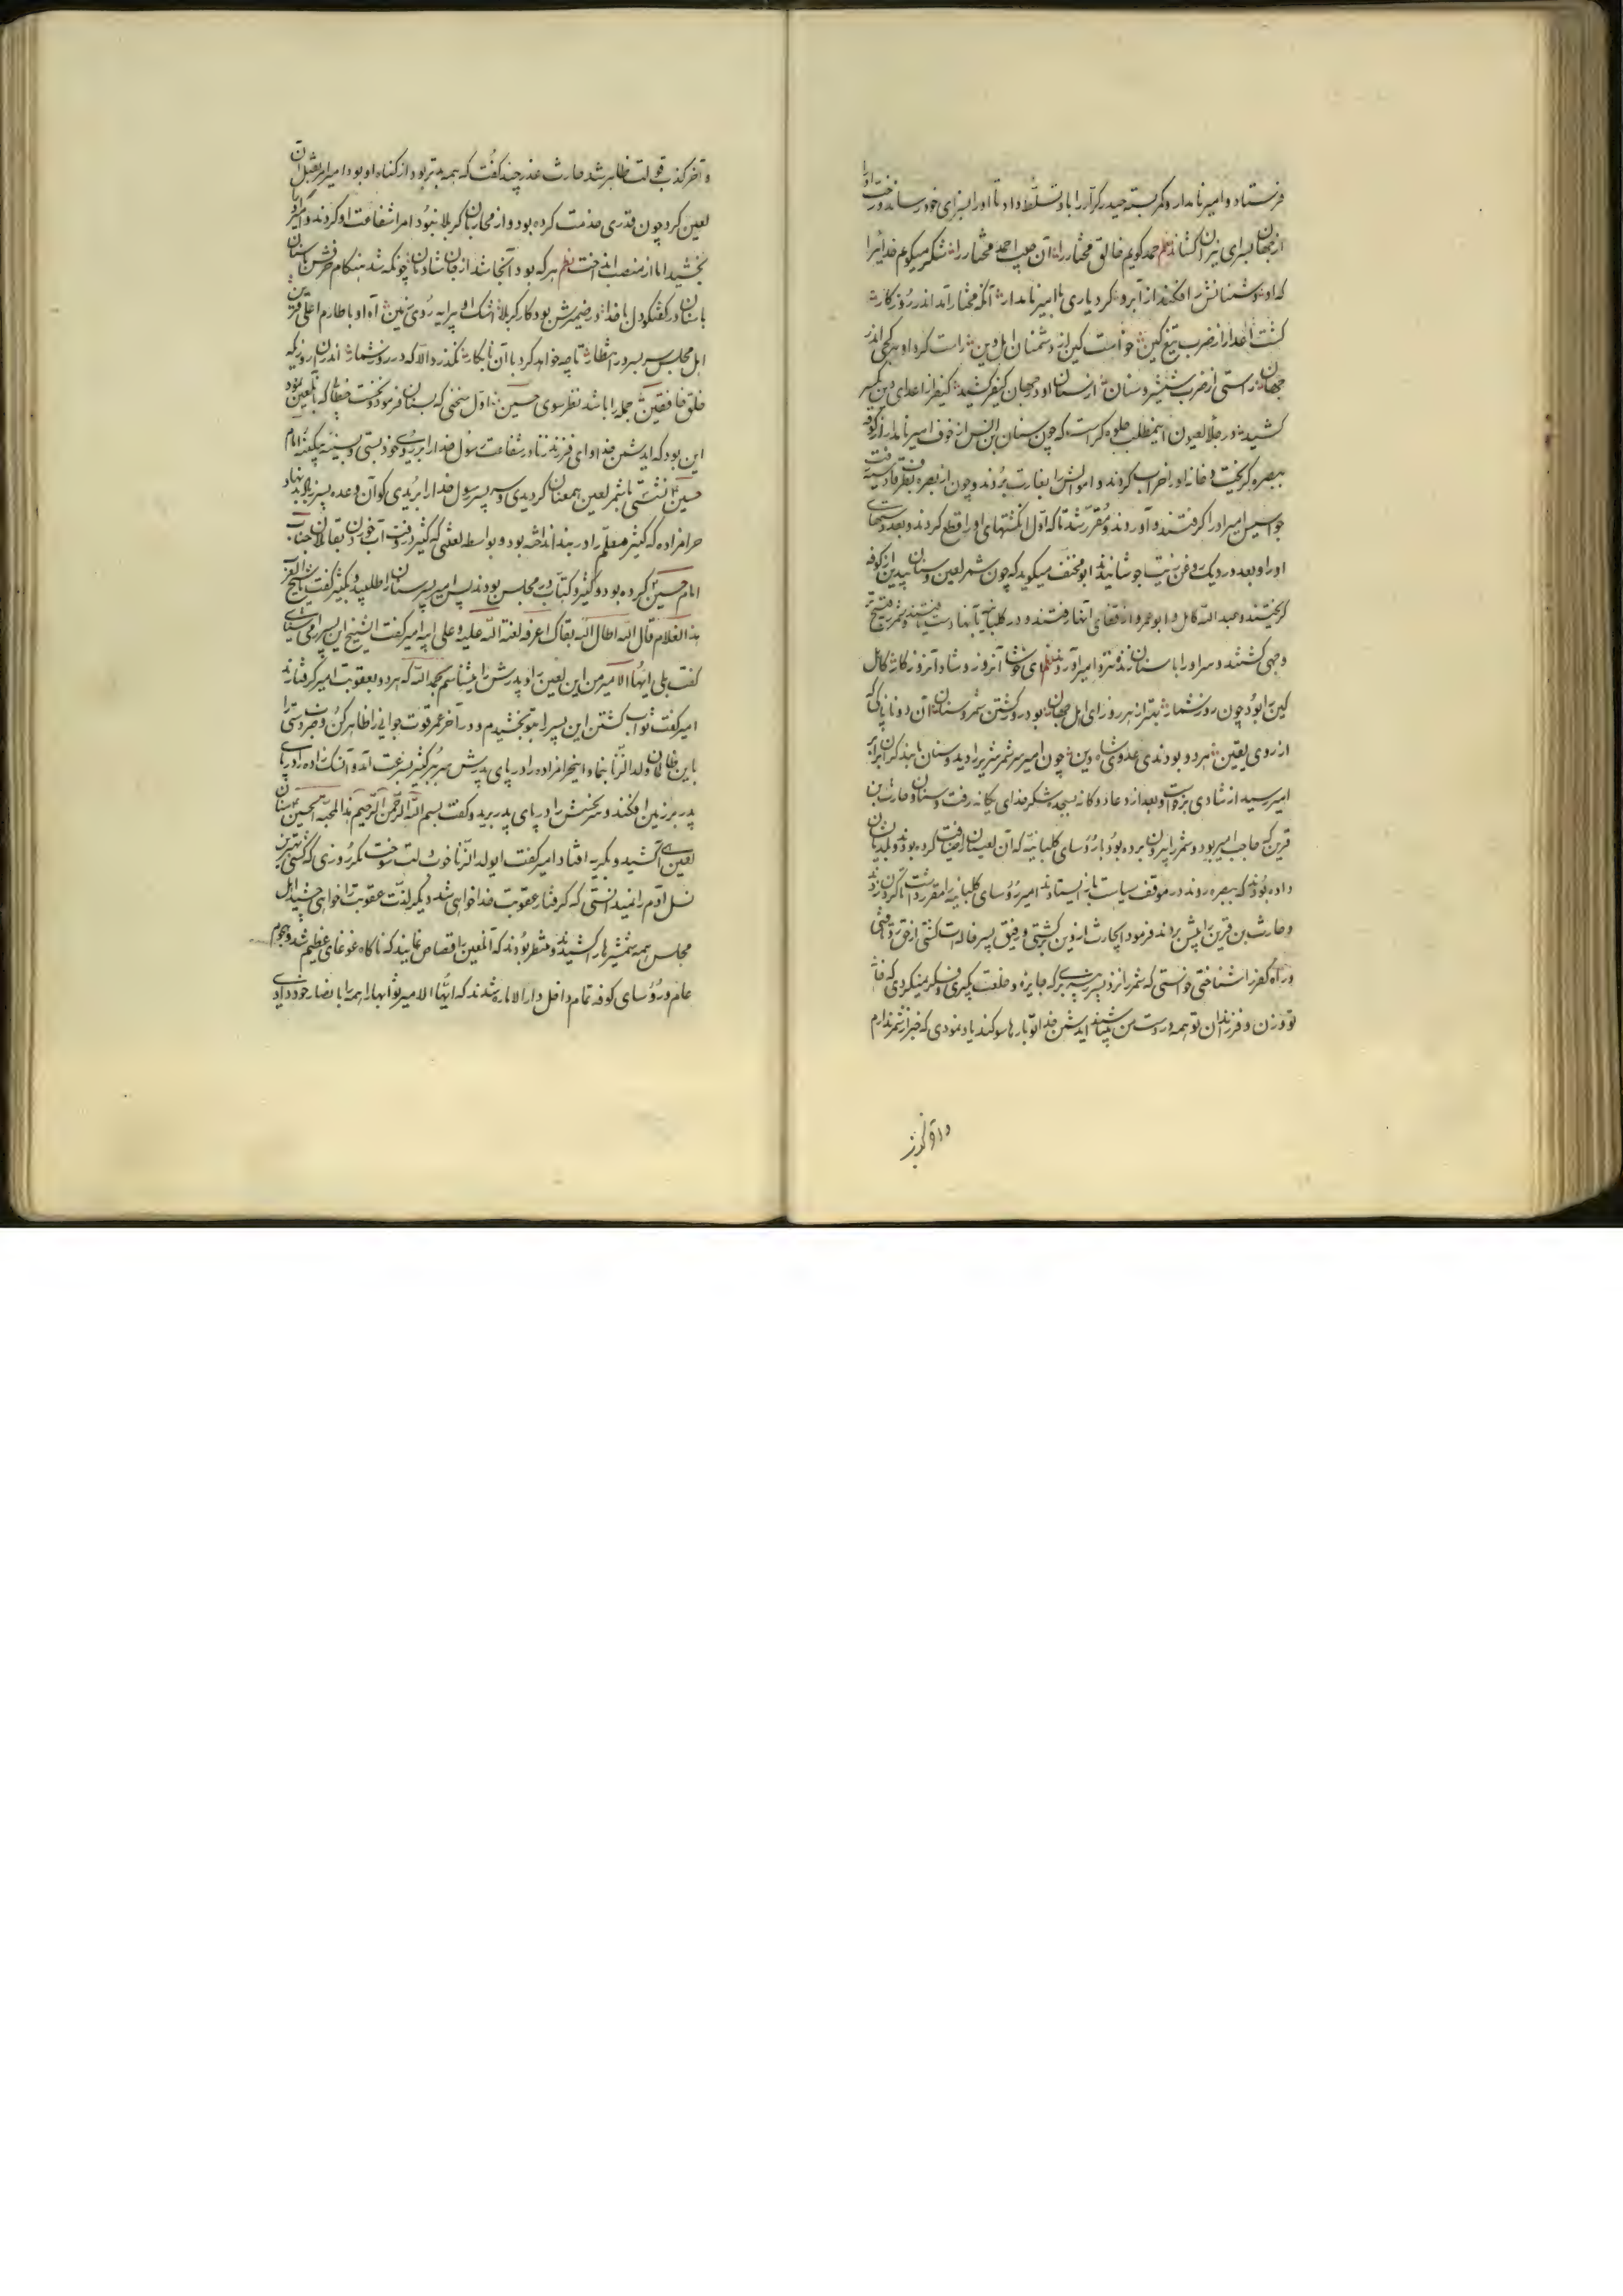 فرستاد و امیر نامدار و کمر بسته حیدر کرار را باو تسلط داد تا او را بسزای خود رساند و رخت او را
از جهان بسرای نیران کشاند نظم حمد کویم خالق مختار را آن حبیب احمد مختار را شکر میکویم خدائیرا
که او دشمنانش را فکند از آبرو کرد یاری با امیر نامدار آنکه مختار آمد اندر روزکار
کشت اعدا را ز ضرب تیغ کین خواست کین از دشمنان اهل دین راست کرد او هر کجی اندر
جهان راستی از ضرب شمشیر و سنان از سنان او در جهان کیفر کشید کیفر از اعدای دین یکسر
کشید در جلأ العیون اینمطلب جلوه کر است که چون سنان ابن انس از خوف امیر نامدار از کوفه
ببصره کریخت و خانه او را خراب کردند و اموالش را بغارت بردند و چون از بصره بطرف قادسیه رفت
جواسیس امیر او را کرفتند و آوردند و مقرر شد تا که اول انکشتهای او را قطع کردند و بعد دستهای
او را و بعد در دیک روغن زیت جوشانیدند ابو مخنف میکوید که چون شمر لعین و سنان پیدین از کوفه
کریختند و عبد الله کامل و ابو عمرو از قفای آنها رفتند و در کلبانیه بآنها دست یافتند و شمر را بقبیح تر
وجهی کشتند و سر او را با سنان زنده نزد امیر آوردند نظم ای خوشا آنروز و شاد آنروز کار کامل
کین را بود چون روز شمار بهتر از هر روز رای اهل جهان بود روز کشتن شمر و سنان آن دو ناپاکی که
از روی یقین هر دو بودندی عدوی شاه دین چون امیر سر شمر شریر را دید و سنان با بند کران برابر
امیر رسید از شادی برخاست و بعد از دعا دوکانه بسجده شکر خدای یکانه رفت و سنان و حارث بن
قرین که حاجب امیر بود و شمر را بیرون برده بود با رؤسای کلبانیه که آن لعینان را ضیافت کرده بودند و بلدیشان
داده بودند که ببصره روند در موقف سیاست باز ایستادند امیر رؤسای کلبانیه را مقرر داشت تا کردن زدند
و حارث بن قرین را پیش بردند فرمود ایحارث از دین برکشتی و رفیق پسر خاله ات کشتی از حق رو تافتی
و راه کفر را شناختی خواستی که شمر را نزد پسر زبیر بری که جایزه و خلعت بکیری و فکر نمیکردی که خانه
تو و زن و فرزندان تو همه در دست من میباشند ایدشمن خدا تو بارها سوکند یاد نمودی که خبر از شمر ندارم
و آخر کذب
و آخر کذب قولت ظاهر شد حارث عذر چند کفت که همه بدتر بود از کناه او بود امیر امر بقتل آن
لعین کرد چون قدری خدمت کرده بود و از محاربان کربلا نبود امرا شفاعت او کردند و امیر او را
بخشید اما از منصب انداخت نظم هر که بود آنجا شد از جان شادمان چونکه شد هنکام حرفش با سنان
با سنان در کفتکو دل با خدا در ضمیرش بود کار کربلا اشک او پیرایه روی زمین آه او با طارم اعلی قرین
اهل مجلس سربسر در انتظار تا چه خواهد کرد با آن نابکار نکذرد الا که در روز شمار اندران روزیکه
خلق خافقین جمله را باشد نظر سوی حسین اول سخنی که بسنان فرمود و نخست خطا که بآنلعین نمود
این بود که ایدشمن خدا و ای فرزند زنا در شفاعت رسول خدا را بر روی خود بستی و بسینه بی کینه امام
حسین نشستی با شمر لعین همعنان کردیدی و سر پسر رسول خدا را بریدی کو آن وعده پسر زیاد بد نهاد
حرامزاده که کثیر معلم را در بند انداخته بود و بواسطه لعنتی که کثیر در وقت آب خوردن بقاتلان جناب
امام حسین کرده بود و کثیر و کتاب در مجلس بودند پس امیر پسر سنان را طلبید و بکثیر کفت یا شیخ اتعرف
هذا الغلام قال الله اطال الله بقاک اعرفه لعنة الله علیه و علی ابیه امیر کفت ایشیخ این پسر را می شناسی
کفت بلی ایها الامیر من این لعین را و پدرش را میشناسم بحمد الله که هر دو بعقوبت امیر کرفتارند
امیر کفت ثواب کشتن این پسر را بتو بخشیدم و در آخر عمر قوت جوانی را ظاهر کن و ضرب دستی را
باین ظالمان ولد الزنا بنما و اینحرامزاده را در پای پدرش سر ببر کثیر بسرعت آمد و آنسک زاده را در پای
پدر بر زمین افکند و سر نحسش را در پای پدر برید و کفت بسم الله الرحمن الرحیم هذا لمحبة الحسین سنان
لعین آهی کشید و بکریه افتاد امیر کفت ایولد الزنا خوب دلت سوخت مکر روزی که کشتی بهترین
نسل آدم را نمیدانستی که کرفتار عقوبت خدا خواهی شد دیکر لذت عقوبت را خواهی چشید اهل
مجلس همه شمشیرها را کشیدند و منتظر بودند که آنلعین را قصاص نمایند که ناکاه غوغای عظیم شد و هجوم
عام و رؤسای کوفه تمام داخل دار الاماره شدند که ایها الامیر ثوابها را همه را بانصار خود دادی